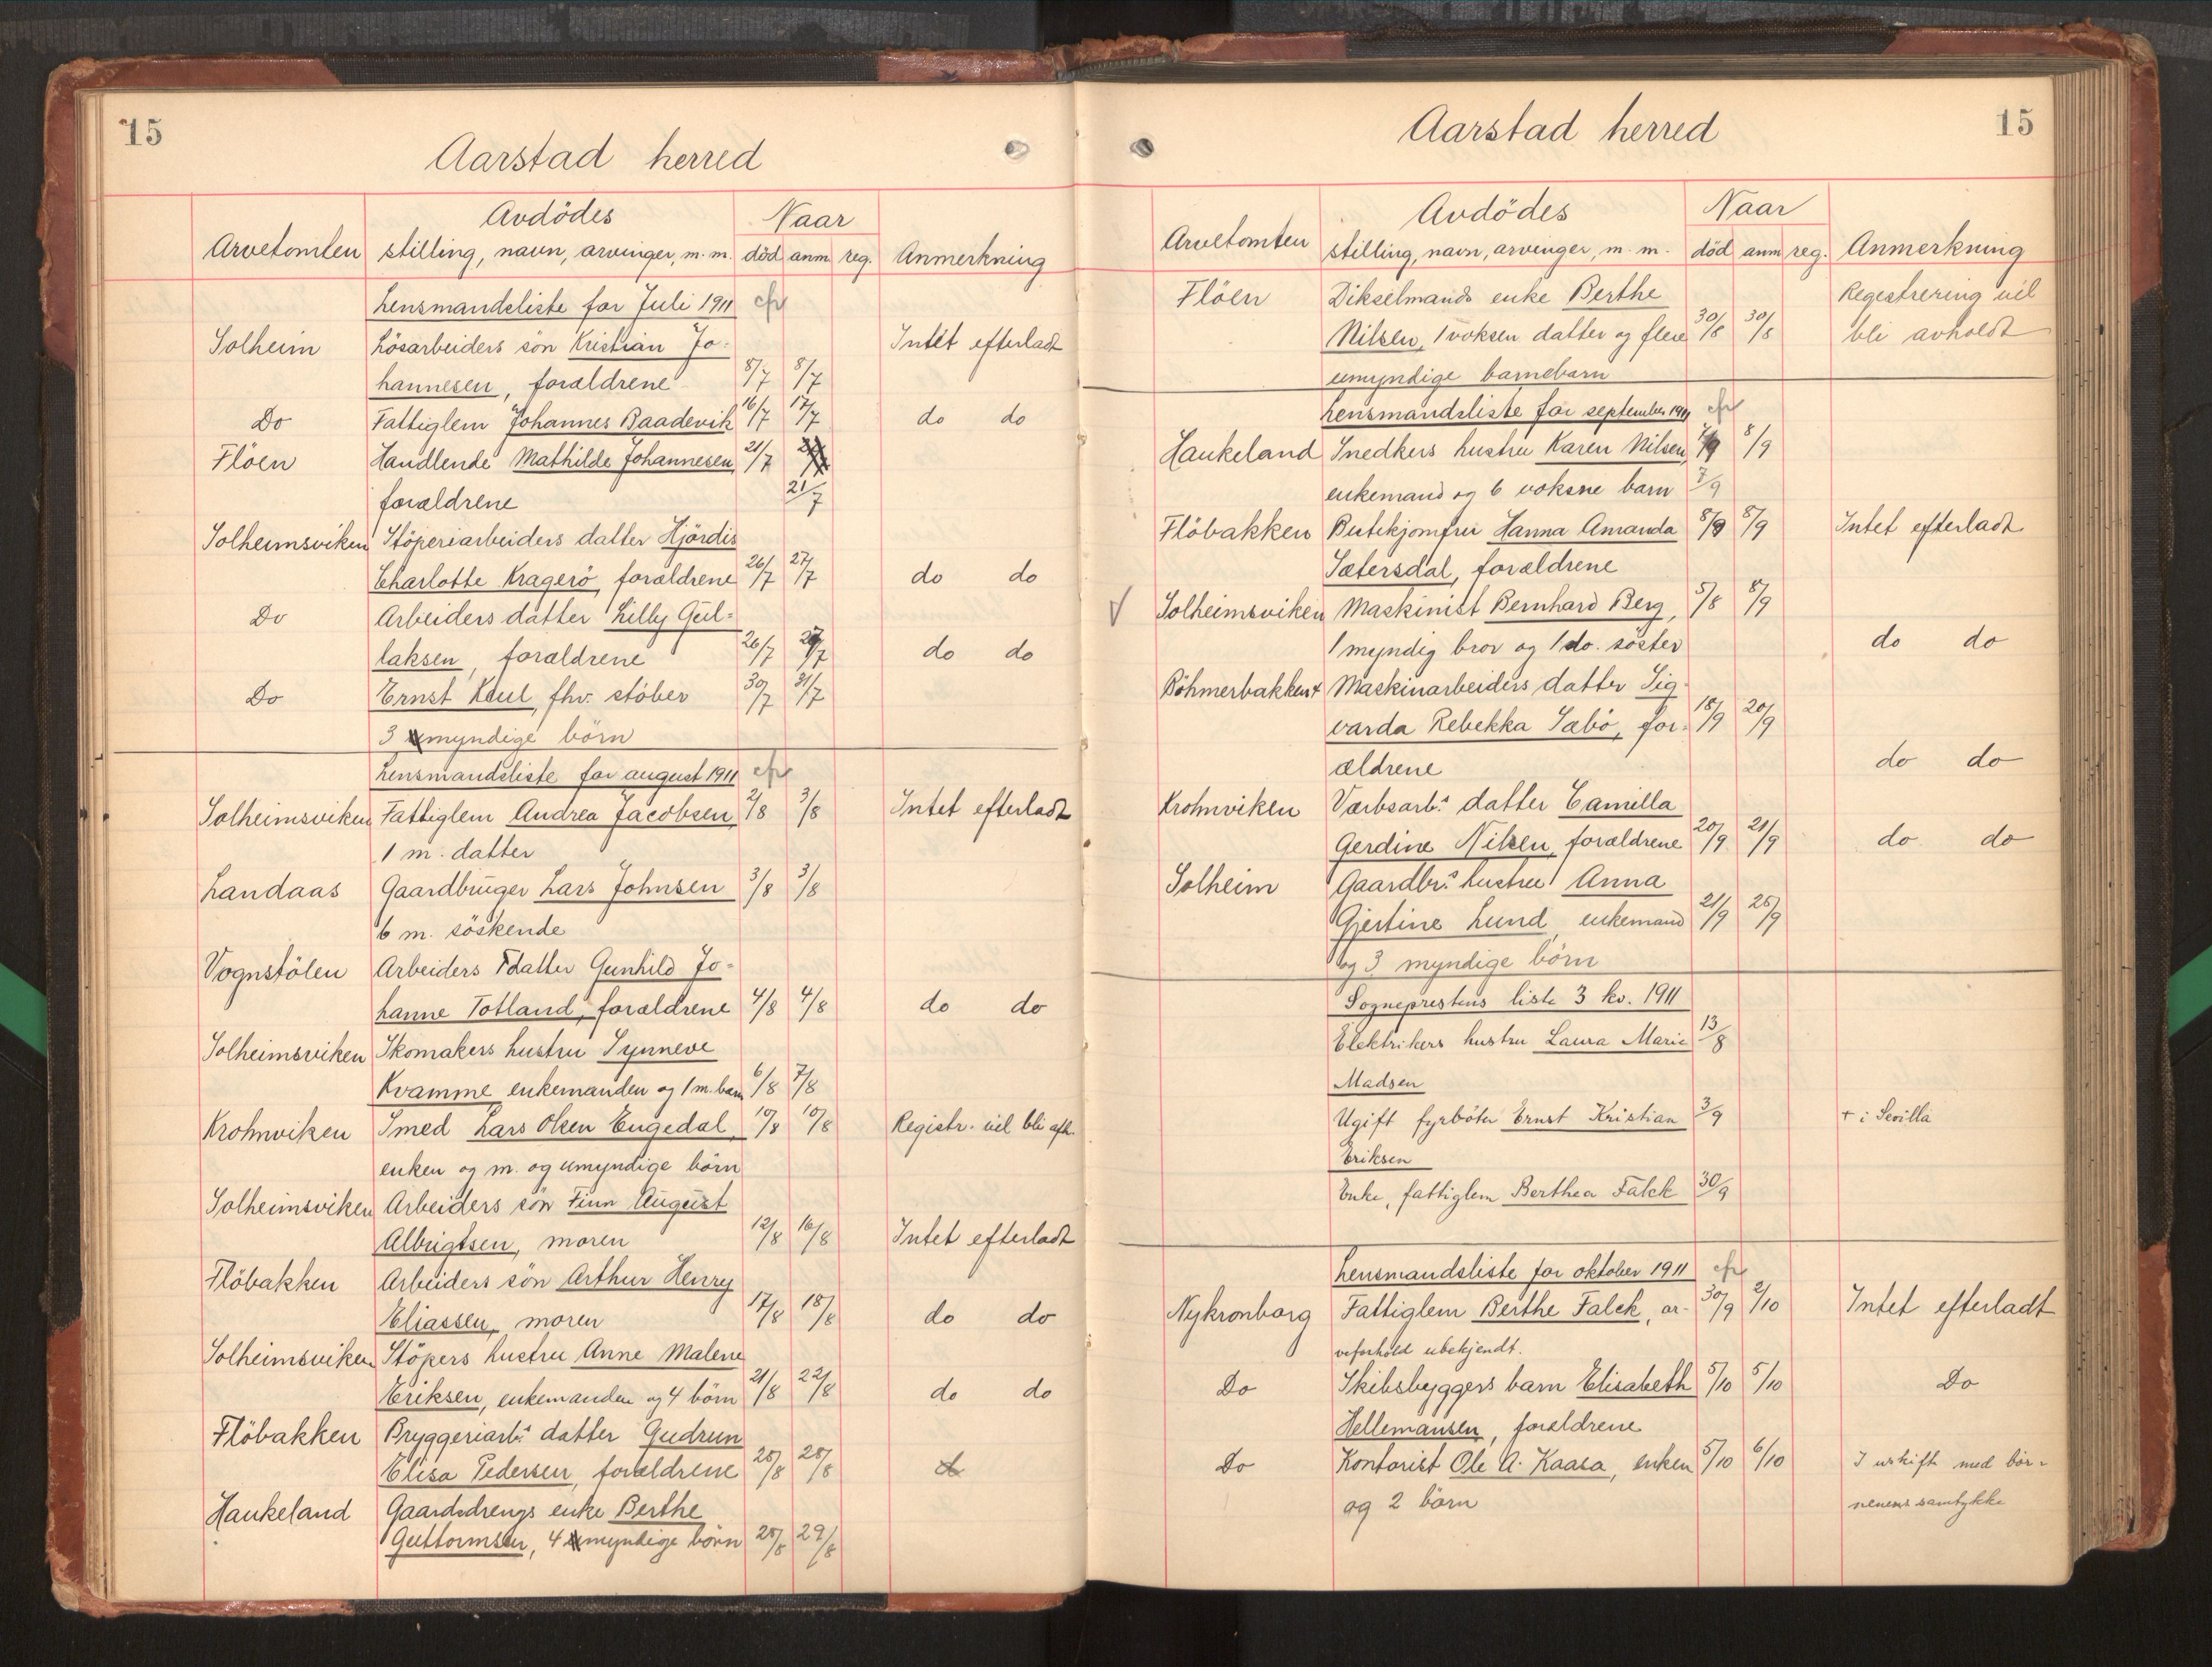 15
Aarstad herred
Arvetomten
Avdödes
stilling, navn, arvinger, m. m.
Naar
död anm. reg.
Anmerkning
Lensmandsliste for Juli 1911 cfr
Solheim Lösarbeiders sön Kristian Jo- Intet efterladt
hannesen, forældrene 8/7 8/7
Do Fattiglem Johannes Raadevik 16/7 17/7 do do
Flöen Handlende Mathilde Johannesen, 21/7
forældrene 21/7
Solheimsviken Stöperiarbeiders datter Hjördis
Charlotte Kragerö, forældrene 26/7 27/7 do do
Do Arbeiders datter Lilly Gul-
laksen, forældrene 26/7 27/7 do do
Do Ernst Keul, fhv. stöber 30/7 31/7
3 myndige börn
Lensmandsliste for august 1911 cfr
Solheimsviken Fattiglem Andrea Jacobsen, 2/8 3/8 Intet efterladt
1 m. datter
Landaas Gaardbruger Lars Johnsen 3/8 3/8
6 m. söskende
Vognstölen Arbeiders datter Gunhild Jo-
hanne Totland, forældrene 4/8 4/8 do do
Solheimsviken Skomakers hustru Synneve
Kvamme, enkemanden og 1 m. barn 6/8 7/8
Krohnviken Smed Lars Olsen Engedal, 10/8 10/8 Registr. vil bli afh.
enken og m. og umyndige börn
Solheimsviken Arbeiders sön Finn August
Albrigtsen, moren 12/8 16/8 Intet efterladt
Flöbakken Arbeiders sön Arthur Henry
Eliassen, moren 17/8 18/8 do do
Solheimsviken Stöpers hustru Anne Malene
Eriksen, enkemanden og 4 börn 21/8 22/8 do do
Flöbakken Bryggeriarb.s datter Gudrun
Elisa Pedersen, forældrene 28/8 28/8
Haukeland Gaardsdrengs enke Berthe
Guttormsen, 4 myndige börn 28/8 29/8
15
Aarstad herred
Arvetomten
Avdödes
stilling, navn, arvinger, m. m.
Naar
död anm. reg.
Anmerkning
Flöen Dikselmands enke Berthe Regestrering vil
Nilsen, 1 voksen datter og flere 30/8 30/8 bli avholdt
umyndige barnebarn
Lensmandsliste for september 1911 cfr
Haukeland Snedkers hustru Karen Nilsen, 8/9
enkemand og 6 voksne barn 7/9
Flöbakken Butikjomfru Hanna Amanda 8/9 8/9 Intet efterladt
Sætersdal, forældrene
Solheimsviken Maskinist Bernhard Berg, 5/8 8/9
1 myndig bror og 1 do. söster do do
Böhmerbakken Maskinarbeiders datter Sig-
varda Rebekka Sæbö, for- 18/9 20/9
ældrene do do
Krohnviken Værbsarb.s datter Camilla
Gerdine Nilsen, forældrene 20/9 21/9 do do
Solheim Gaardbr.s hustru Anna
Gjertine Lund, enkemand 21/9 25/9
og 3 myndige börn
Sogneprestens liste 3 kv. 1911
Elektrikers hustru Laura Marie 13/8
Madsen
Ugift fyrböter Ernst Kristian 3/9 + i Sevilla
Eriksen
Enke, fattiglem Berthea Falck 30/9
Lensmandsliste for oktober 1911 cfr
Nykronborg Fattiglem Berthe Falck, ar- 30/9 2/10 Intet efterladt
veforhold ubekjendt.
Do Skibsbyggers barn Elisabeth 5/10 5/10 Do
Hellemansen, forældrene
Do Kontorist Ole A. Kaasa, enken 5/10 6/10 I uskift med bör-
og 2 börn nenens samtykke